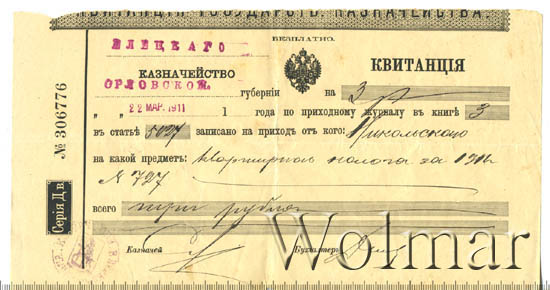 КВИТАНЦІЯ ГОСУДАРСТ. КАЗНАЧЕЙСТВА.
БЕЗПЛАТНО.
ЕЛЕЦКАГО
КАЗНАЧЕЙСТВО КВИТАНЦІЯ
ОРЛОВСКОЙ. губерніи на 3 р
22 МАР. 1911 1 года по приходному журналу въ книгѣ 3
въ статьѣ 5027 записано на приходъ отъ кого: Никольскаго
на какой предметъ: Квартирнаго налога за 191
№ 727
всего три рубля
Казначей Бухгалтеръ
№ 306776
Серія Д в.
Wolmar